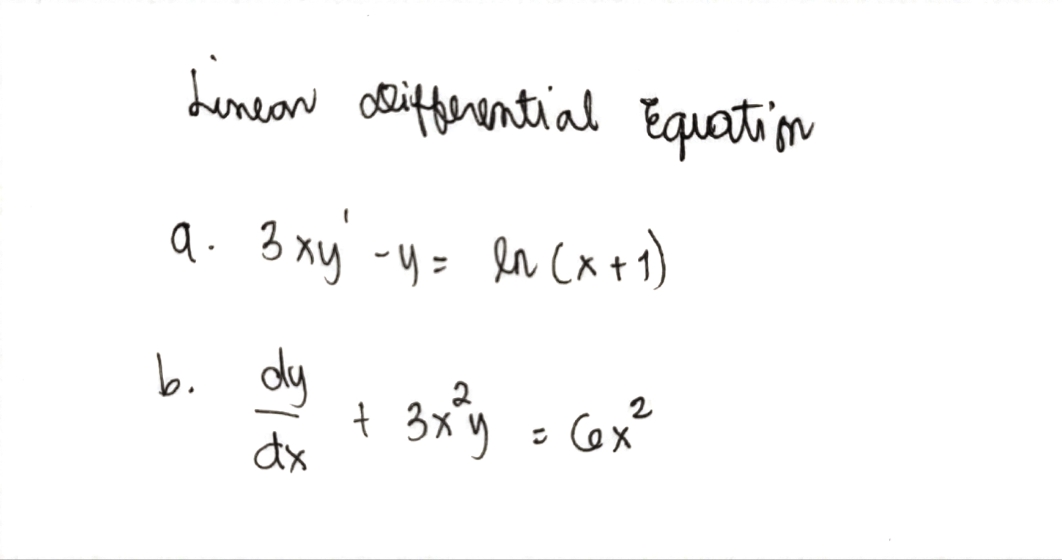 Linear Differential Equation
a. 3xy' - y = ln (x + 1)
b. dy/dx + 3x²y = 6x²